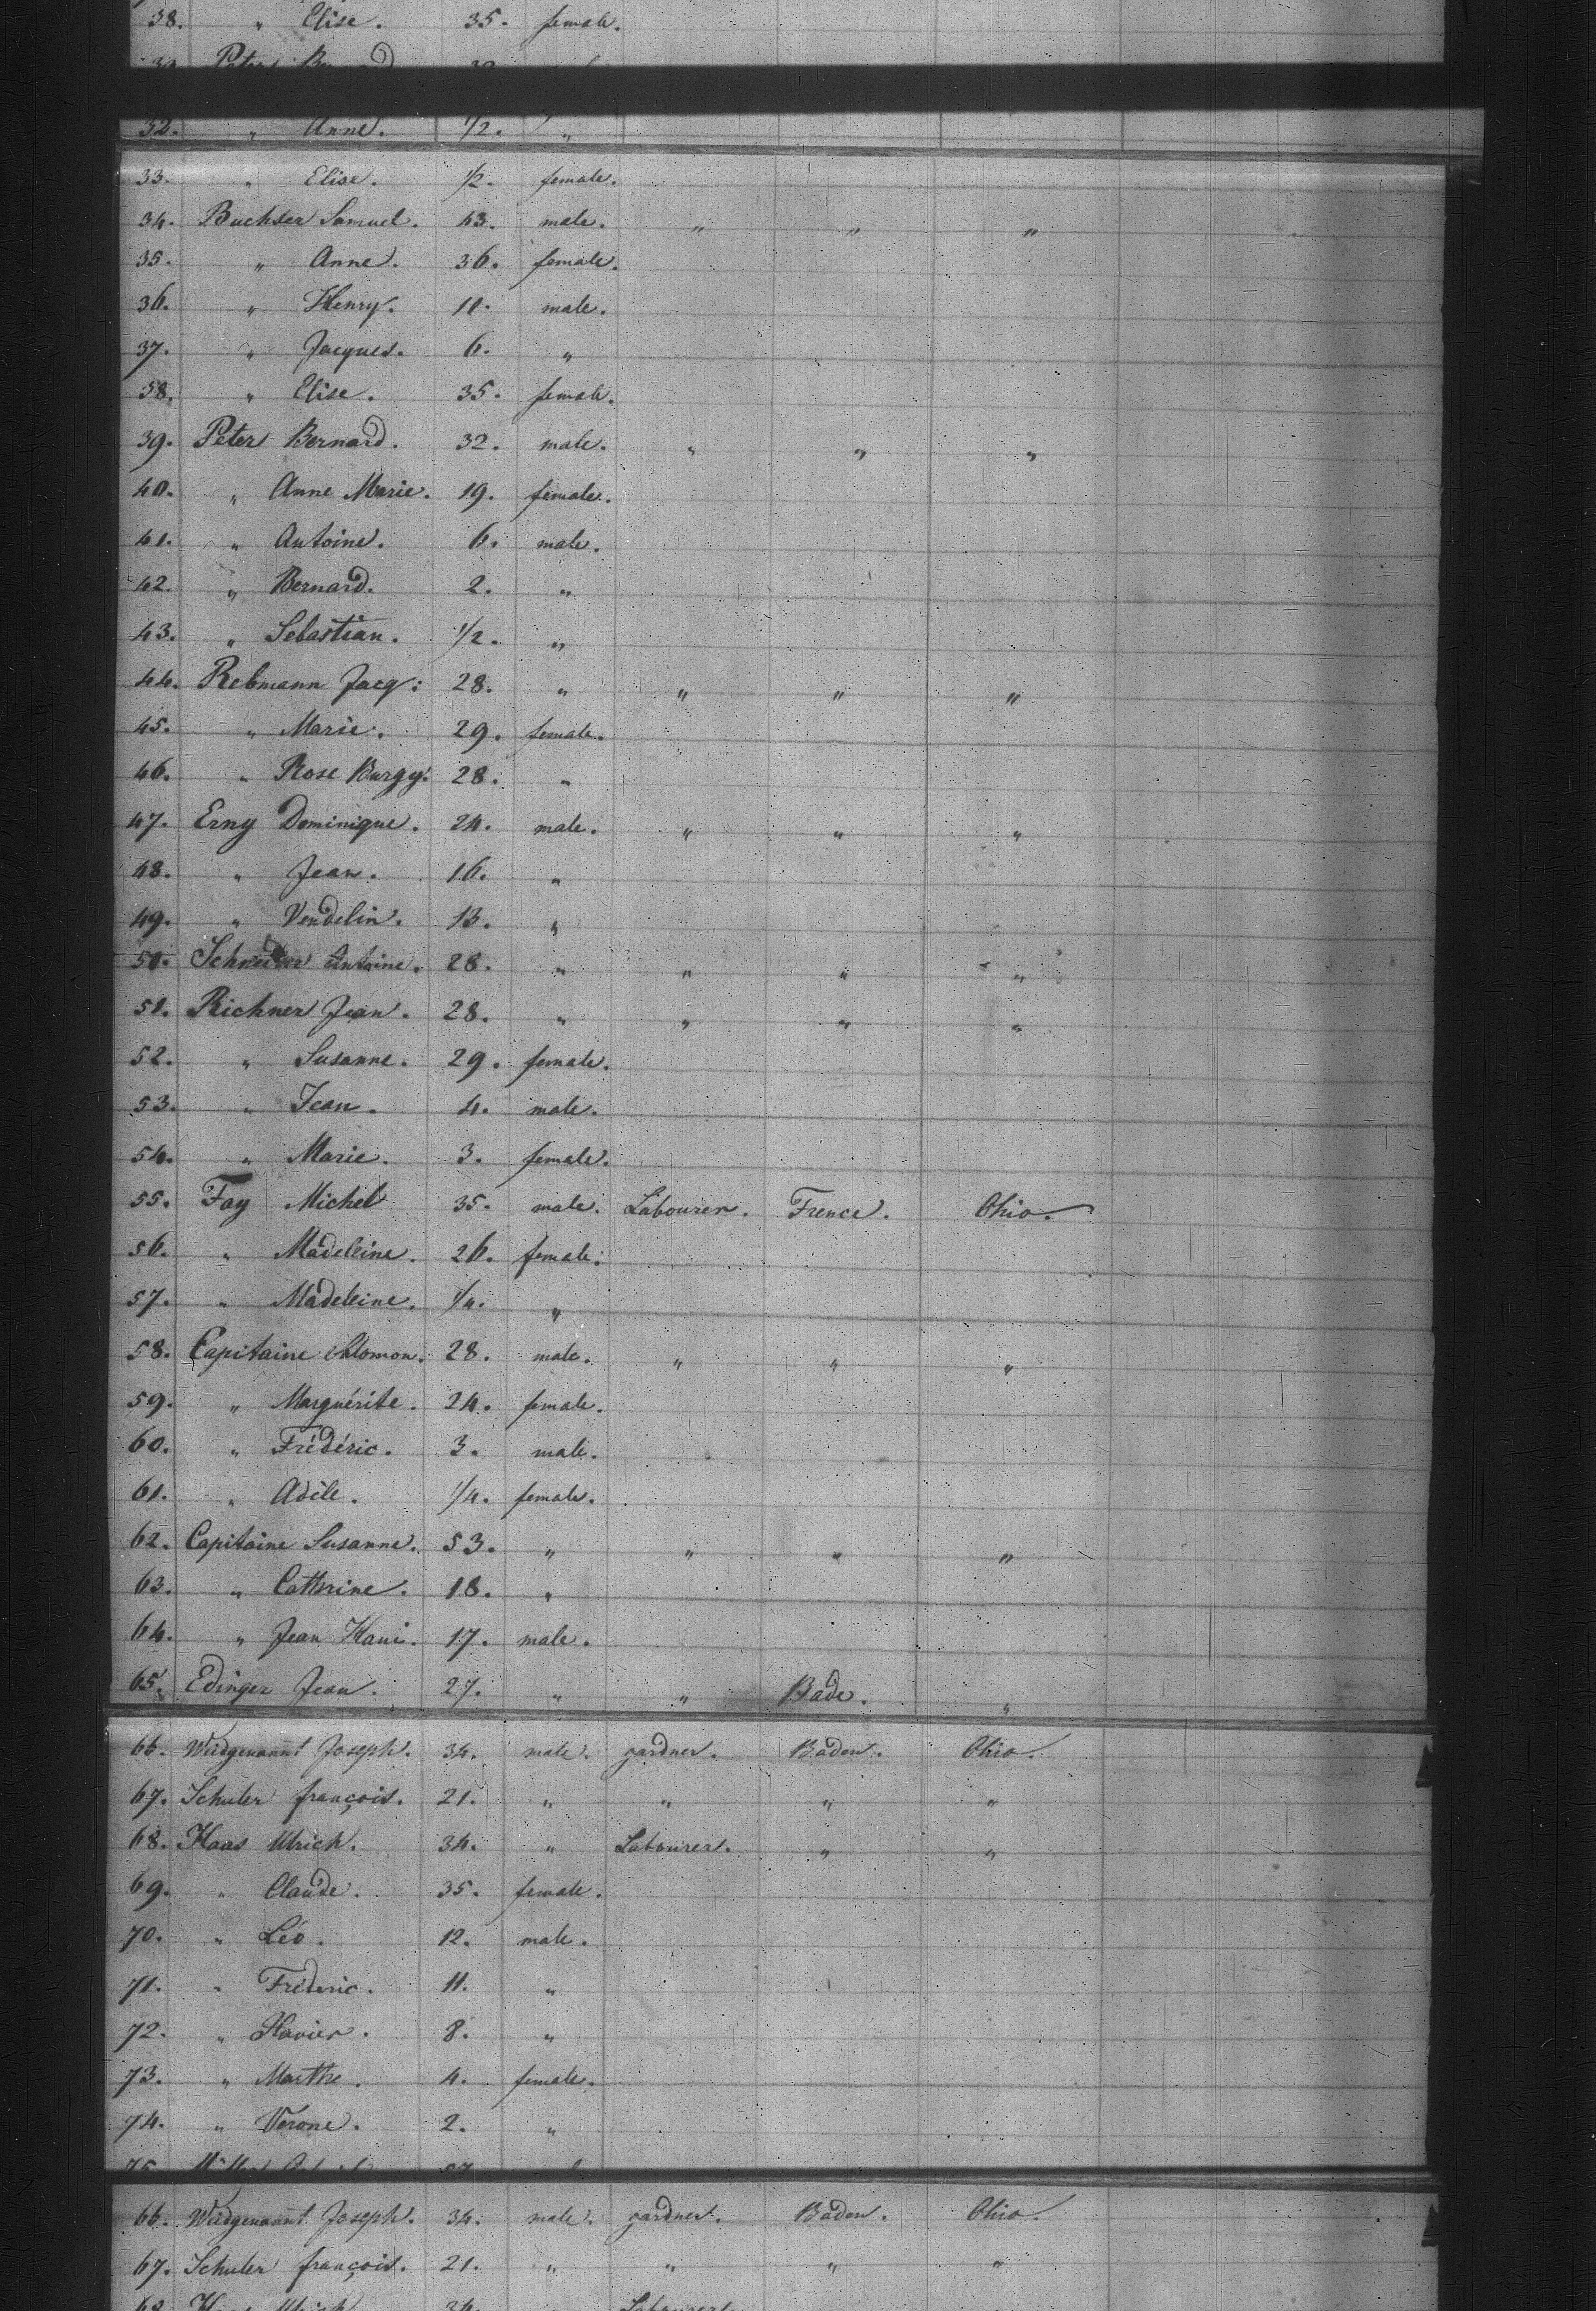 38. " Elise. 35. female.
32. " Anne. 1/2. "
33. " Elise. 1/2. female.
34. Buchser Samuel. 43. male. " " "
35. " Anne. 36. female.
36. " Henry. 11. male.
37. " Jacques. 6. "
38. " Elise. 35. female.
39. Peter Bernard. 32. male. " " "
40. " Anne Marie. 19. female.
41. " Antoine. 6. male.
42. " Bernard. 2. "
43. " Sebastian. 1/2. "
44. Rebmann Jacq: 28. " " " "
45. " Marie. 29. female.
46. " Rose Burgy. 28. "
47. Erny Dominique. 24. male. " " "
48. " Jean. 16. "
49. " Vendelin. 13. "
50. Schneider Antoine. 28. " " " "
51. Richner Jean. 28. " " " "
52. " Susanne. 29. female.
53. " Jean. 4. male.
54. " Marie. 3. female.
55. Fay Michel 35. male. Labourer. Frence. Ohio.
56. " Madeleine. 26. female.
57. " Madeleine. 1/4. "
58. Capitaine Salomon. 28. male. " " "
59. " Marguérite. 24. female.
60. " Frédéric. 3. male.
61. " Adèle. 1/4. female.
62. Capitaine Susanne. 53. " " " "
63. " Cathrine. 18. "
64. " Jean 17. male.
65. Edinger Jean. 27. " " Bade. "
66. Joseph. 34. male. gardner. Baden. Ohio.
67. Schuler françois. 21. " " " "
68. Haas Ulrich. 34. " Labourer. " "
69. " Claude. 35. female.
70. " Léo. 12. male.
71. " Fréderic. 11. "
72. " Xavier. 8. "
73. " Marthe. 4. female.
74. " Vérone. 2. "
66. Joseph. 34. male. gardner. Baden. Ohio.
67. Schuler françois. 21. " " " "